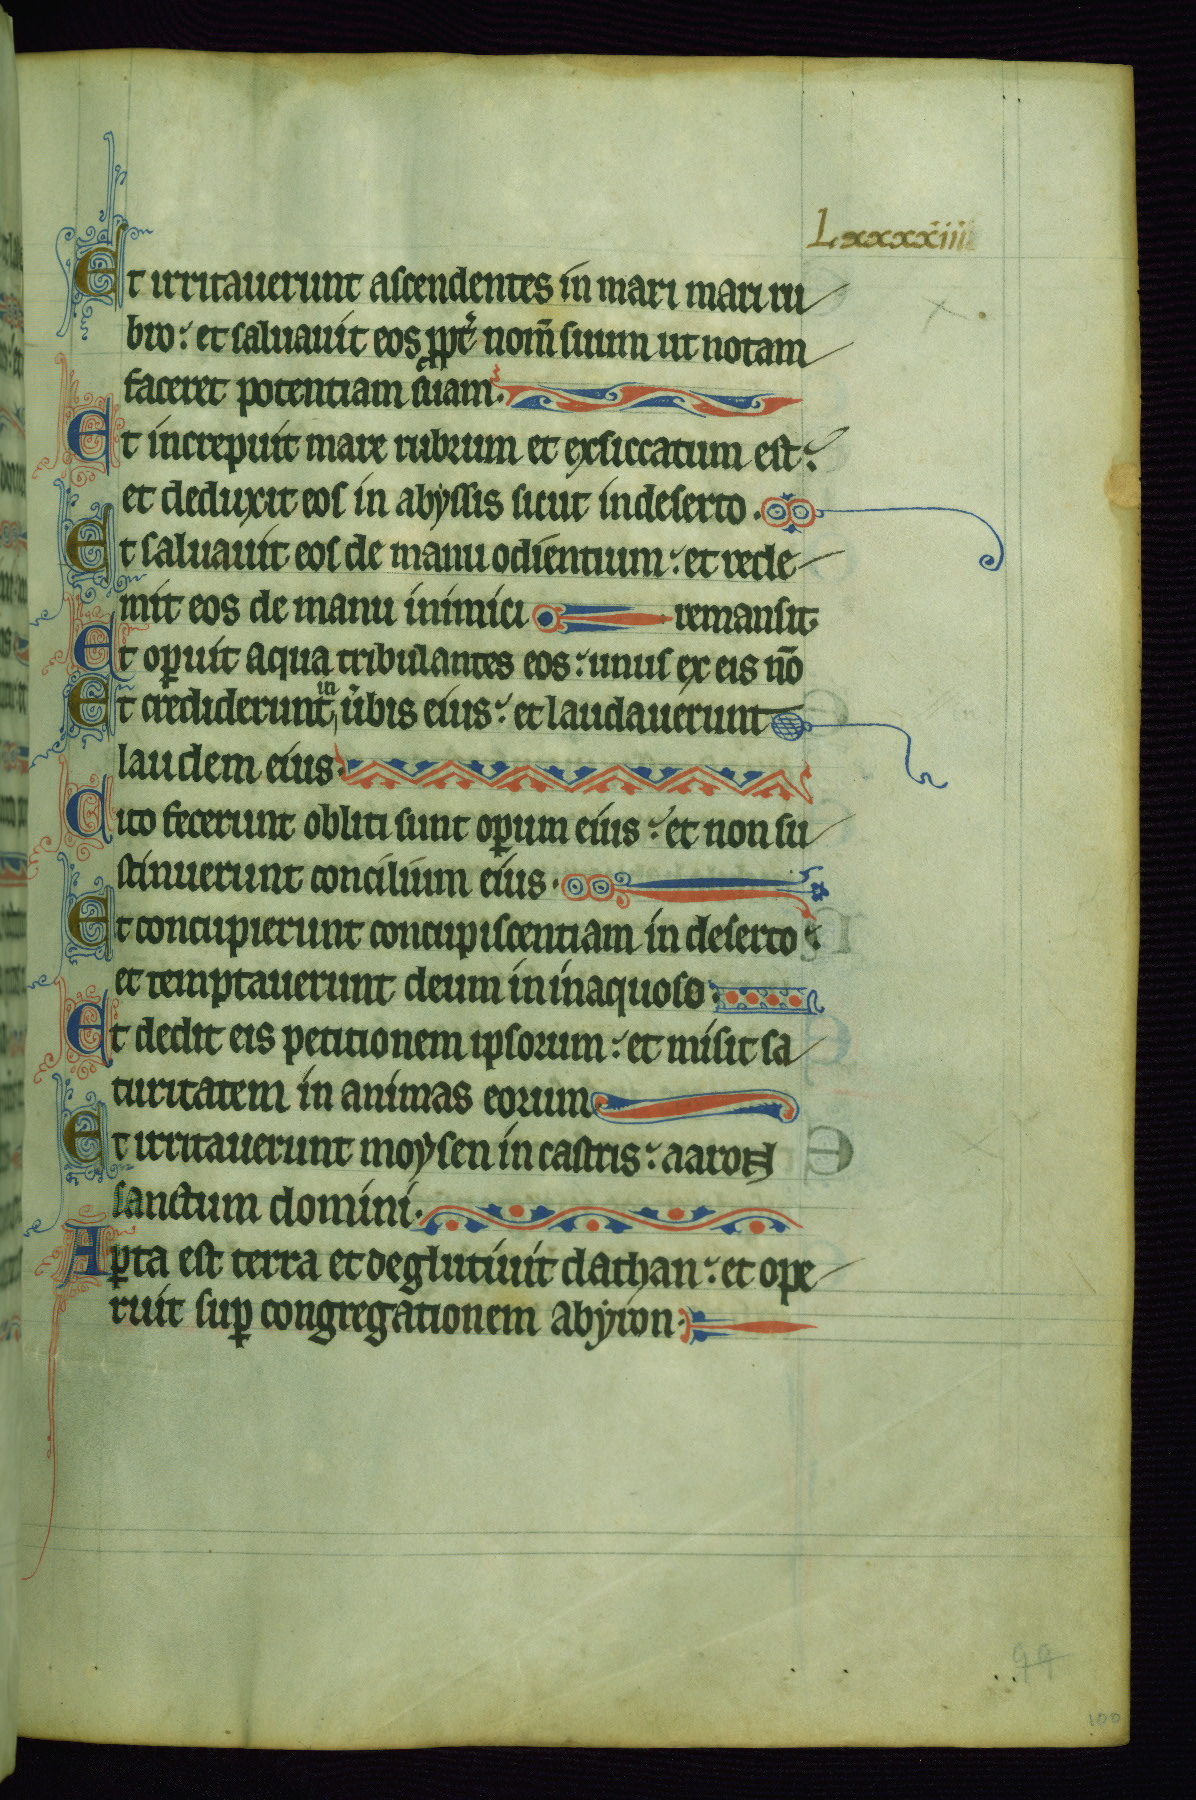 Lxxxxiiii
Et irritauerunt ascendentes in mari mari ru
bro: et saluauit eos ppt̄ nom̄ suum ut notam
faceret potentiam suam.
Et increpuit mare rubrum et exsiccatum est:
et deduxit eos in abyssis sicut in deserto.
Et saluauit eos de manu odientium: et rede
mit eos de manu inimici remansit
Et oꝑuit aqua tribulantes eos: unus ex eis nō
Et crediderunt in ub̄is eius: et laudauerunt
laudem eius.
Cito fecerunt obliti sunt oꝑum eius: et non su
stinuerunt concilium eius.
Et concupierunt concupiscentiam in deserto:
et temptauerunt deum in inaquoso.
Et dedit eis petitionem ipsorum: et misit sa
turitatem in animas eorum
Et irritauerunt moysen in castris: aaron
sanctum domini.
Aꝑta est terra et deglutiuit dathan: et ope
ruit suꝑ congregationem abyron.
99
100